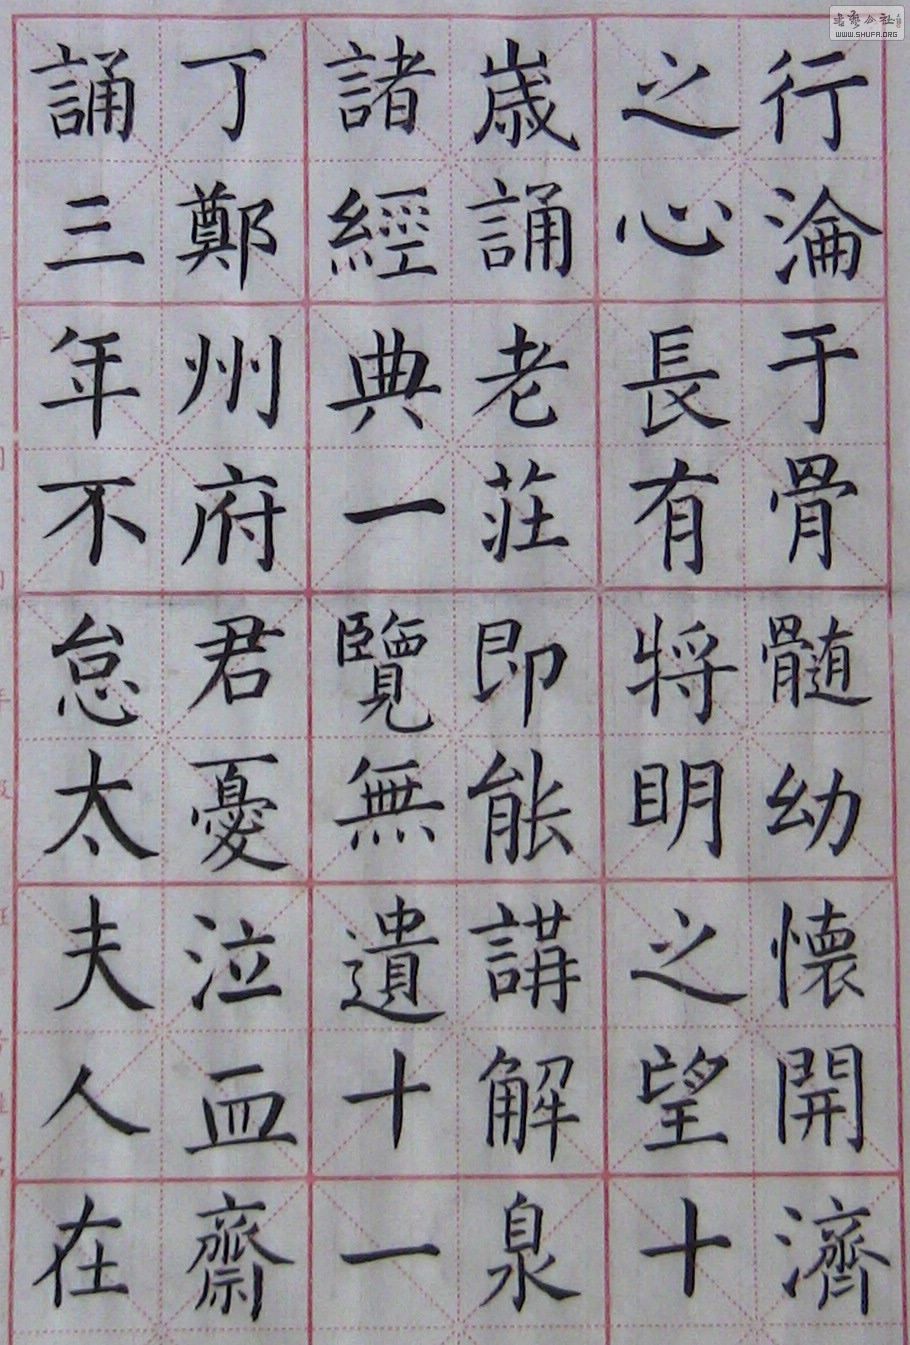 行淪于骨髄幼懐開濟
之心長有将明之望十
歳誦老莊即能講解泉
諸經典一覽無遺十一
丁鄭州府君憂泣血齋
誦三年不怠太夫人在
書法公社
www.SHUFA.ORG